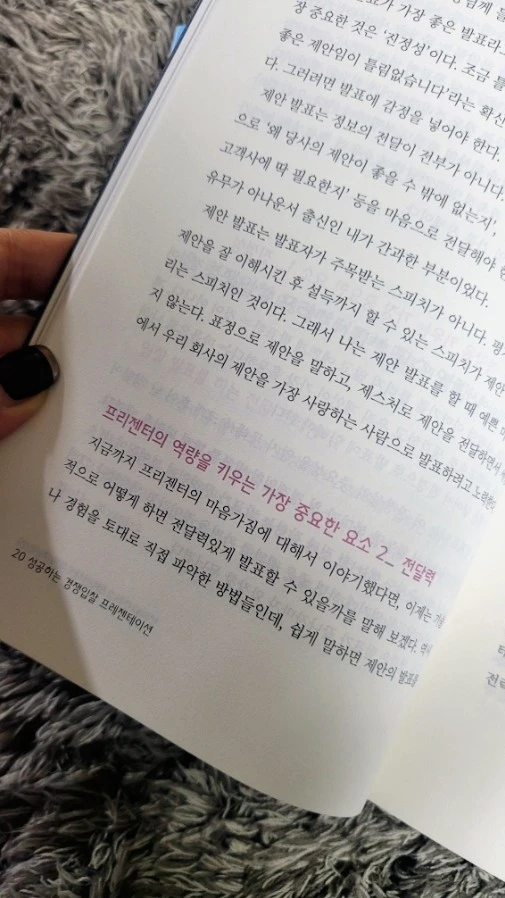 가 가장 좋은 발표라
장 중요한 것은 '진정성'이다. 조금 틀
좋은 제안임이 틀림없습니다'라는 확신
다. 그러려면 발표에 감정을 넣어야 한다.
제안 발표는 정보의 전달이 전부가 아니다.
으로 '왜 당사의 제안이 좋을 수 밖에 없는지,
고객사에 딱 필요한지' 등을 마음으로 전달해야
유무가 아나운서 출신인 내가 간과한 부분이었다.
제안 발표는 발표자가 주목받는 스피치가 아니다. 평가
제안을 잘 이해시킨 후 설득까지 할 수 있는 스피치가 제안
리는 스피치인 것이다. 그래서 나는 제안 발표를 할 때 예쁜
지 않는다. 표정으로 제안을 말하고, 제스처로 제안을 전달하면서
에서 우리 회사의 제안을 가장 사랑하는 사람으로 발표하려고 노력한다
프리젠터의 역량을 키우는 가장 중요한 요소 2_ 전달력
지금까지 프리젠터의 마음가짐에 대해서 이야기했다면, 이제는
적으로 어떻게 하면 전달력있게 발표할 수 있을까를 말해 보겠다. 역시
나 경험을 토대로 직접 파악한 방법들인데, 쉽게 말하면 제안의 발표를
20 성공하는 경쟁입찰 프레젠테이션
전략